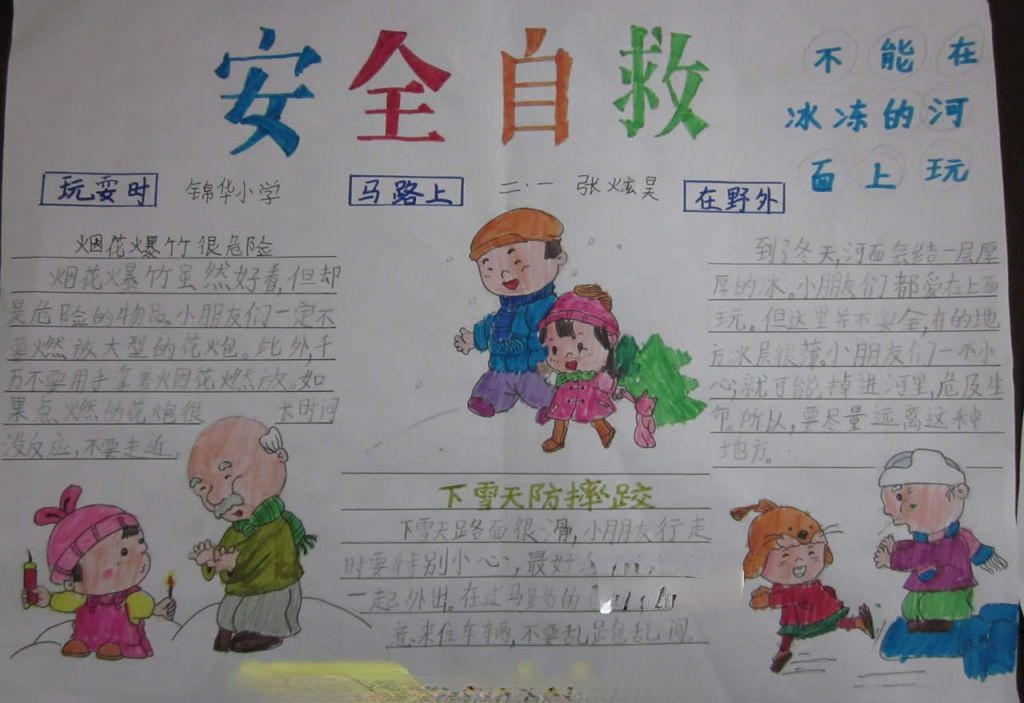 安全自救
不能在
冰冻的河
面上玩
玩耍时
锦华小学
马路上
二·一 张炫昊
在野外
烟花爆竹很危险
烟花爆竹虽然好看,但却
是危险的物品。小朋友们一定不
要燃放大型的花炮。此外,千
万不要用手拿着烟花燃放。如
果点燃的花炮很 长时间
没反应,不要走近。
下雪天防摔跤
下雪天路面很滑,小朋友行走
时要特别小心,最好
一起外出。在过马路的
意来往车辆,不要乱
到了冬天,河面会结一层厚
厚的冰。小朋友们都爱在上面
玩。但这里并不安全,有的地
方冰层很薄。小朋友们一不小
心,就可能掉进河里,危及生
命。所以,要尽量远离这种
地方。